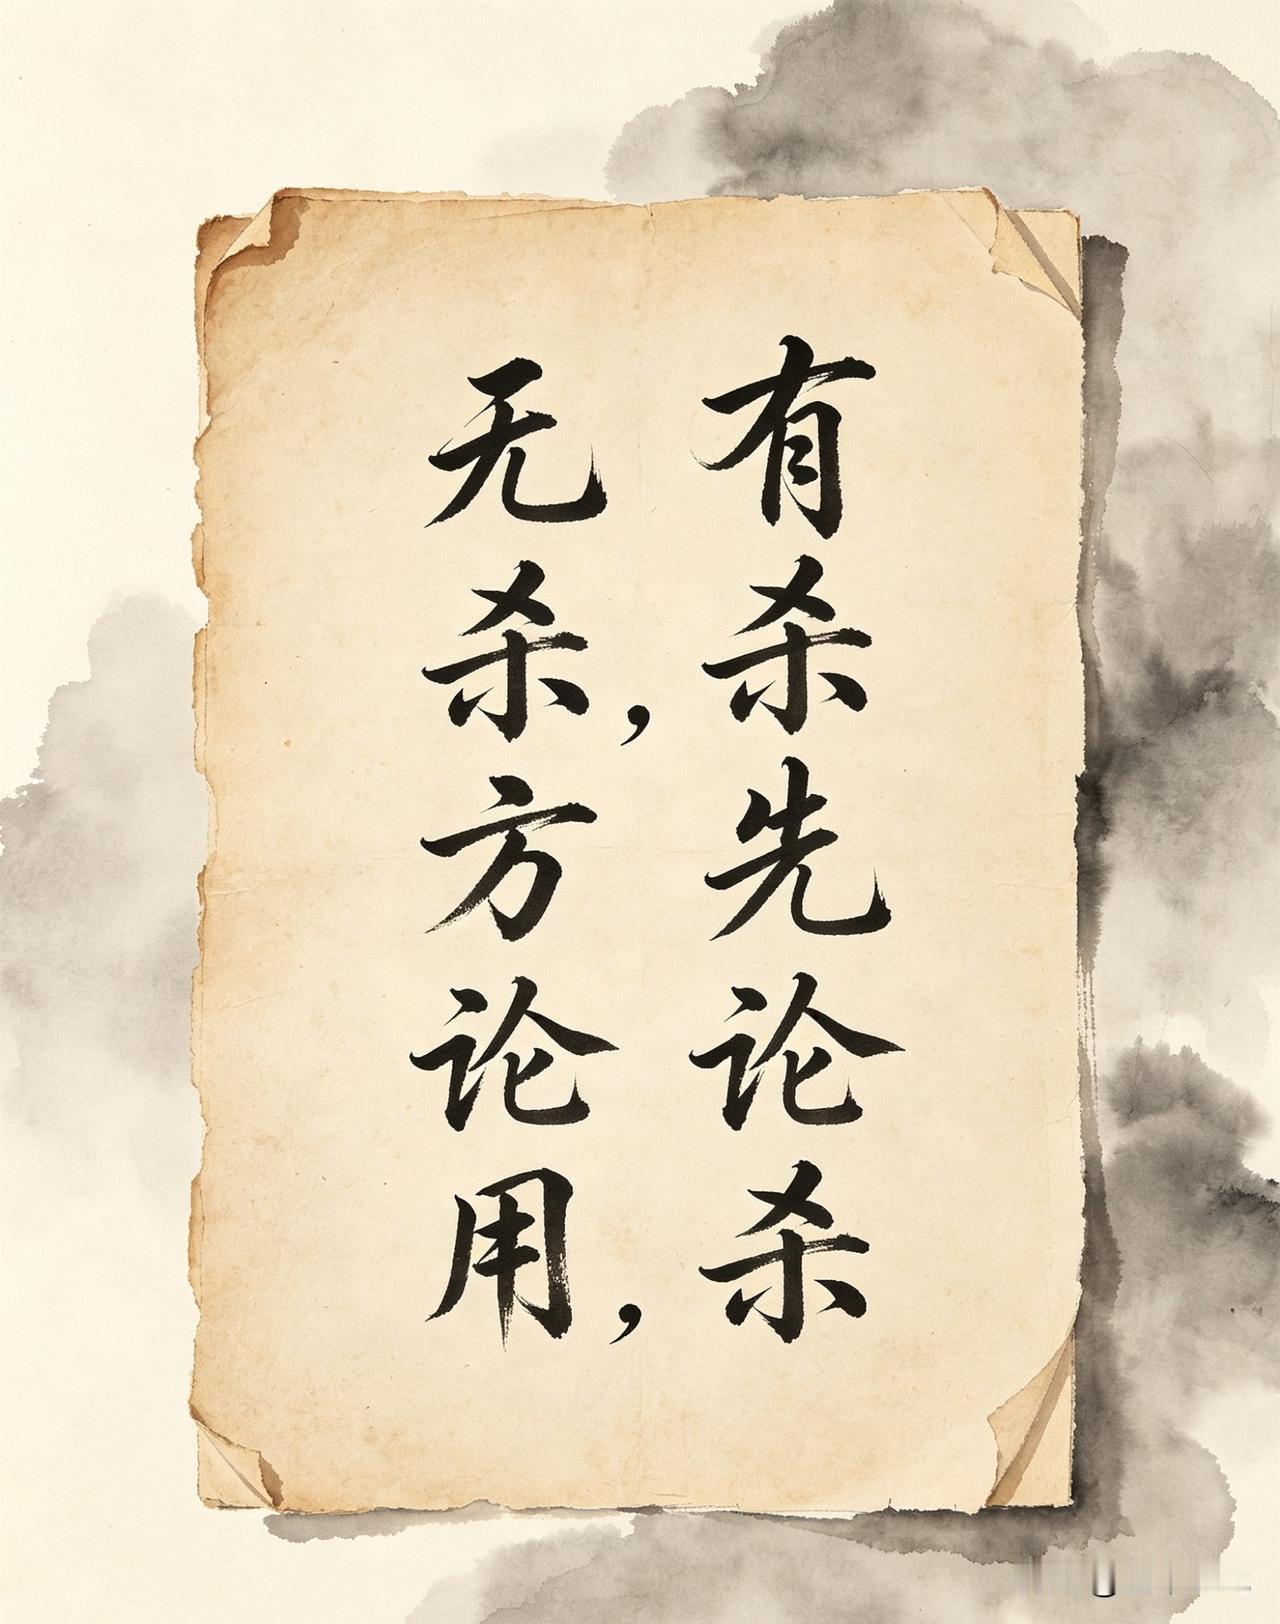 有杀先论杀
无杀，方论用，